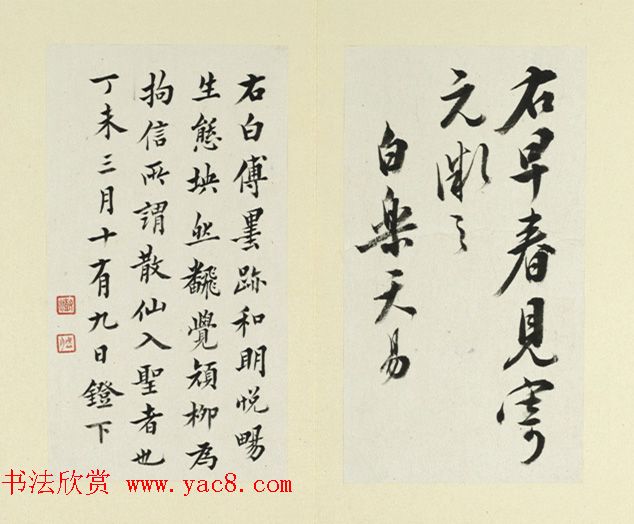 右早春見寄
元微之
白樂天易
右白傅墨跡和明悅暢
生態坱然飜覺顔柳為
拘信所謂散仙入聖者也
丁未三月十有九日鐙下
书法欣赏 www.yac8.com